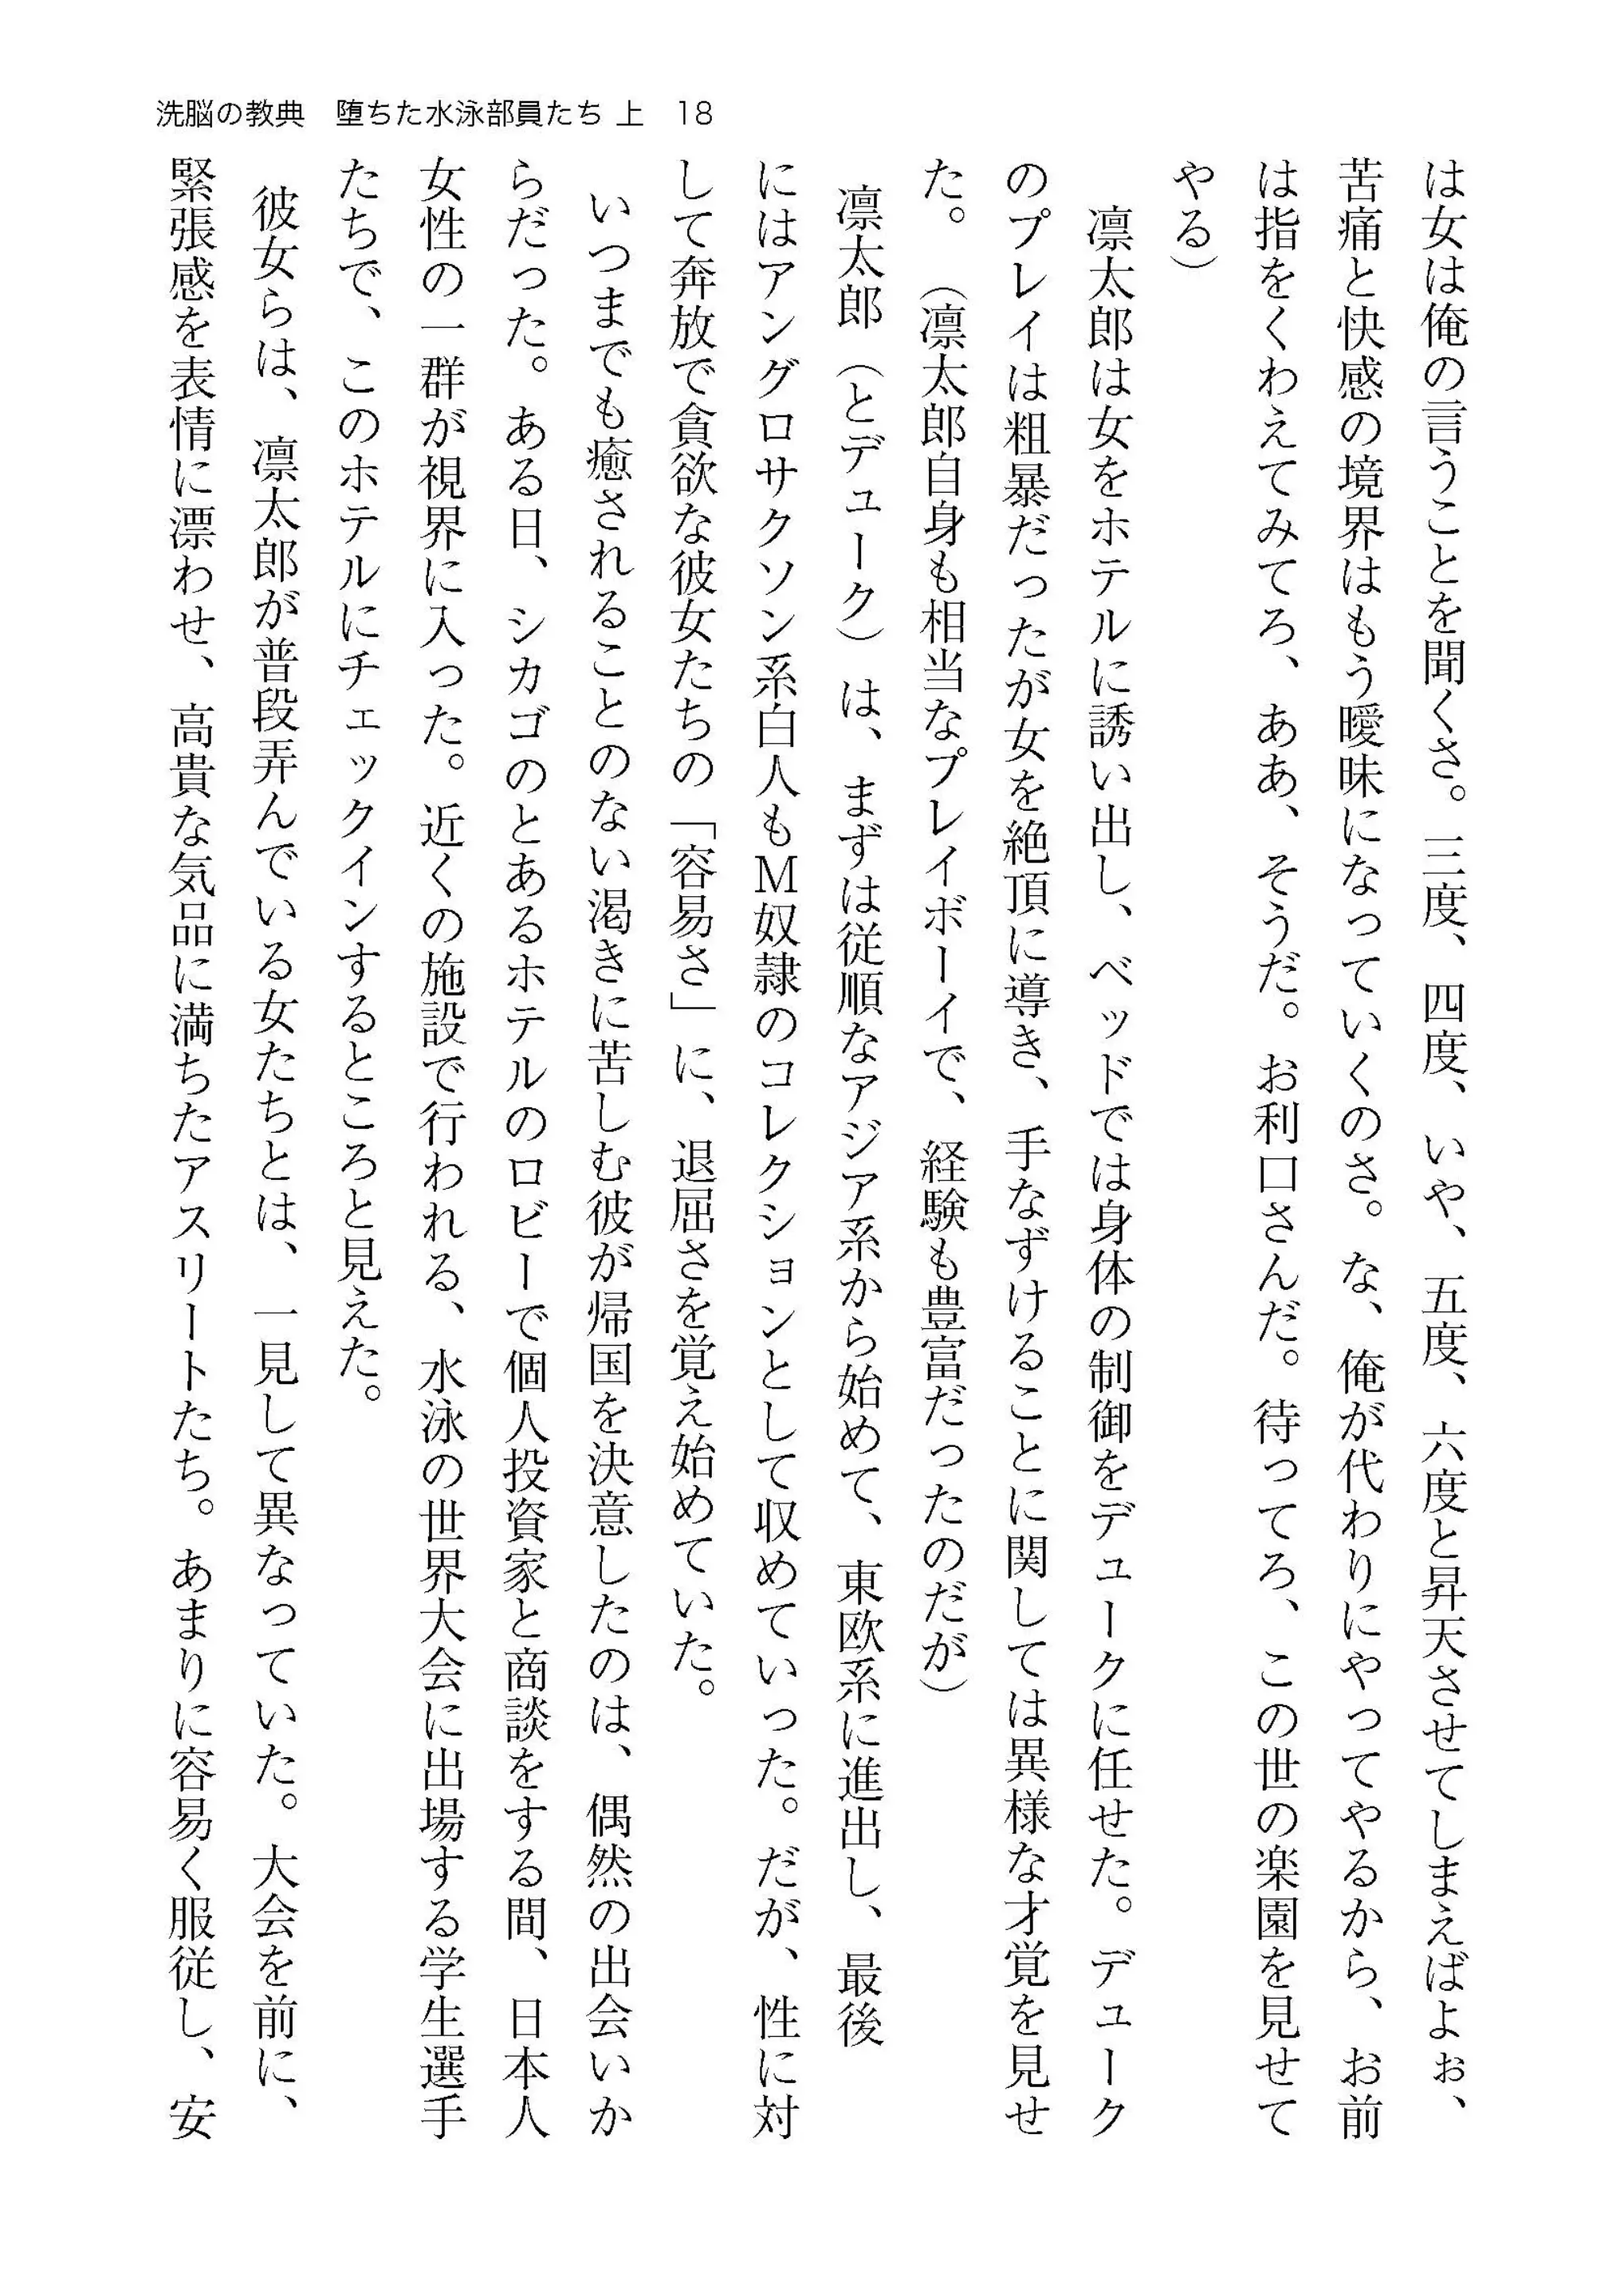 洗脳の教典　堕ちた水泳部員たち 上　18
は女は俺の言うことを聞くさ。三度、四度、いや、五度、六度と昇天させてしまえばよぉ、
苦痛と快感の境界はもう曖昧になっていくのさ。な、俺が代わりにやってやるから、お前
は指をくわえてみてろ、ああ、そうだ。お利口さんだ。待ってろ、この世の楽園を見せて
やる）
　凛太郎は女をホテルに誘い出し、ベッドでは身体の制御をデュークに任せた。デューク
のプレイは粗暴だったが女を絶頂に導き、手なずけることに関しては異様な才覚を見せ
た。（凛太郎自身も相当なプレイボーイで、経験も豊富だったのだが）
　凛太郎（とデューク）は、まずは従順なアジア系から始めて、東欧系に進出し、最後
にはアングロサクソン系白人もＭ奴隷のコレクションとして収めていった。だが、性に対
して奔放で貪欲な彼女たちの「容易さ」に、退屈さを覚え始めていた。
　いつまでも癒されることのない渇きに苦しむ彼が帰国を決意したのは、偶然の出会いか
らだった。ある日、シカゴのとあるホテルのロビーで個人投資家と商談をする間、日本人
女性の一群が視界に入った。近くの施設で行われる、水泳の世界大会に出場する学生選手
たちで、このホテルにチェックインするところと見えた。
　彼女らは、凛太郎が普段弄んでいる女たちとは、一見して異なっていた。大会を前に、
緊張感を表情に漂わせ、高貴な気品に満ちたアスリートたち。あまりに容易く服従し、安